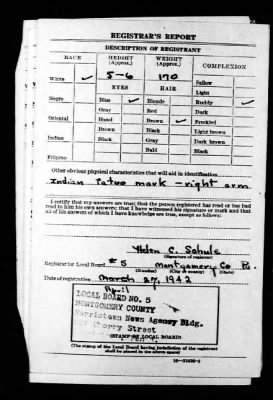 REGISTRAR'S REPORT
DESCRIPTION OF REGISTRANT
RACE HEIGHT (Approx.) WEIGHT (Approx.) COMPLEXION
White ✓ 5-6 170 Sallow
EYES HAIR Light
Negro Blue ✓ Blonde Ruddy ✓
Gray Red Dark
Oriental Hazel Brown ✓ Freckled
Brown Black Light brown
Indian Black Gray Dark brown
Bald Black
Filipino
Other obvious physical characteristics that will aid in identification
Indian Tatoo mark - right arm
I certify that my answers are true; that the person registered has read or has had
read to him his own answers; that I have witnessed his signature or mark and that
all of his answers of which I have knowledge are true, except as follows:
Helen C.
(Signature of registrar)
Registrar for Local Board #5 Montgomery Co Pa.
(Number) (City or county) (State)
Date of registration April 27, 1942
LOCAL BOARD NO. 5
MONTGOMERY COUNTY
Norristown News Agency Bldg.
Cherry Street
(STAMP OF LOCAL BOARD)
(The stamp of the Local Board having jurisdiction of the registrant
shall be placed in the above space)